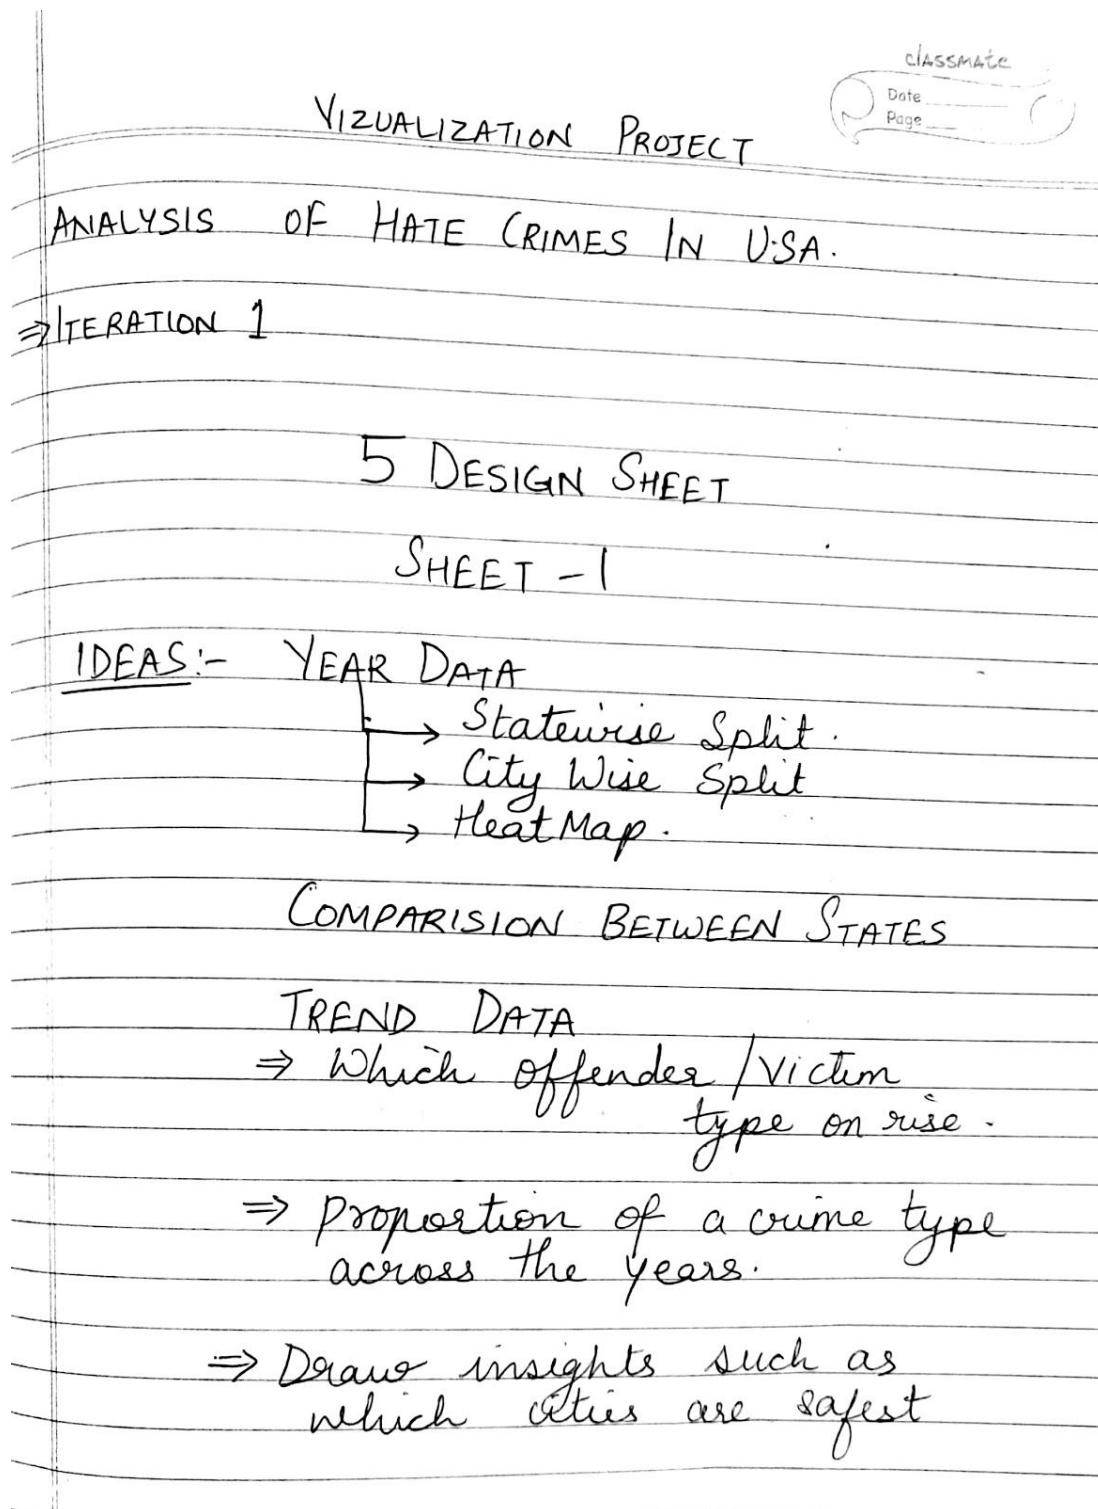 classmate
Date
Page
VIZUALIZATION PROJECT
ANALYSIS OF HATE CRIMES IN U.SA.
⇒ ITERATION 1
5 DESIGN SHEET
SHEET - 1
IDEAS:- YEAR DATA
→ Statewise Split.
→ City Wise Split
→ HeatMap.
COMPARISION BETWEEN STATES
TREND DATA
⇒ Which offender/Victim
type on rise.
⇒ Proportion of a crime type
across the years.
⇒ Draw insights such as
which cities are safest